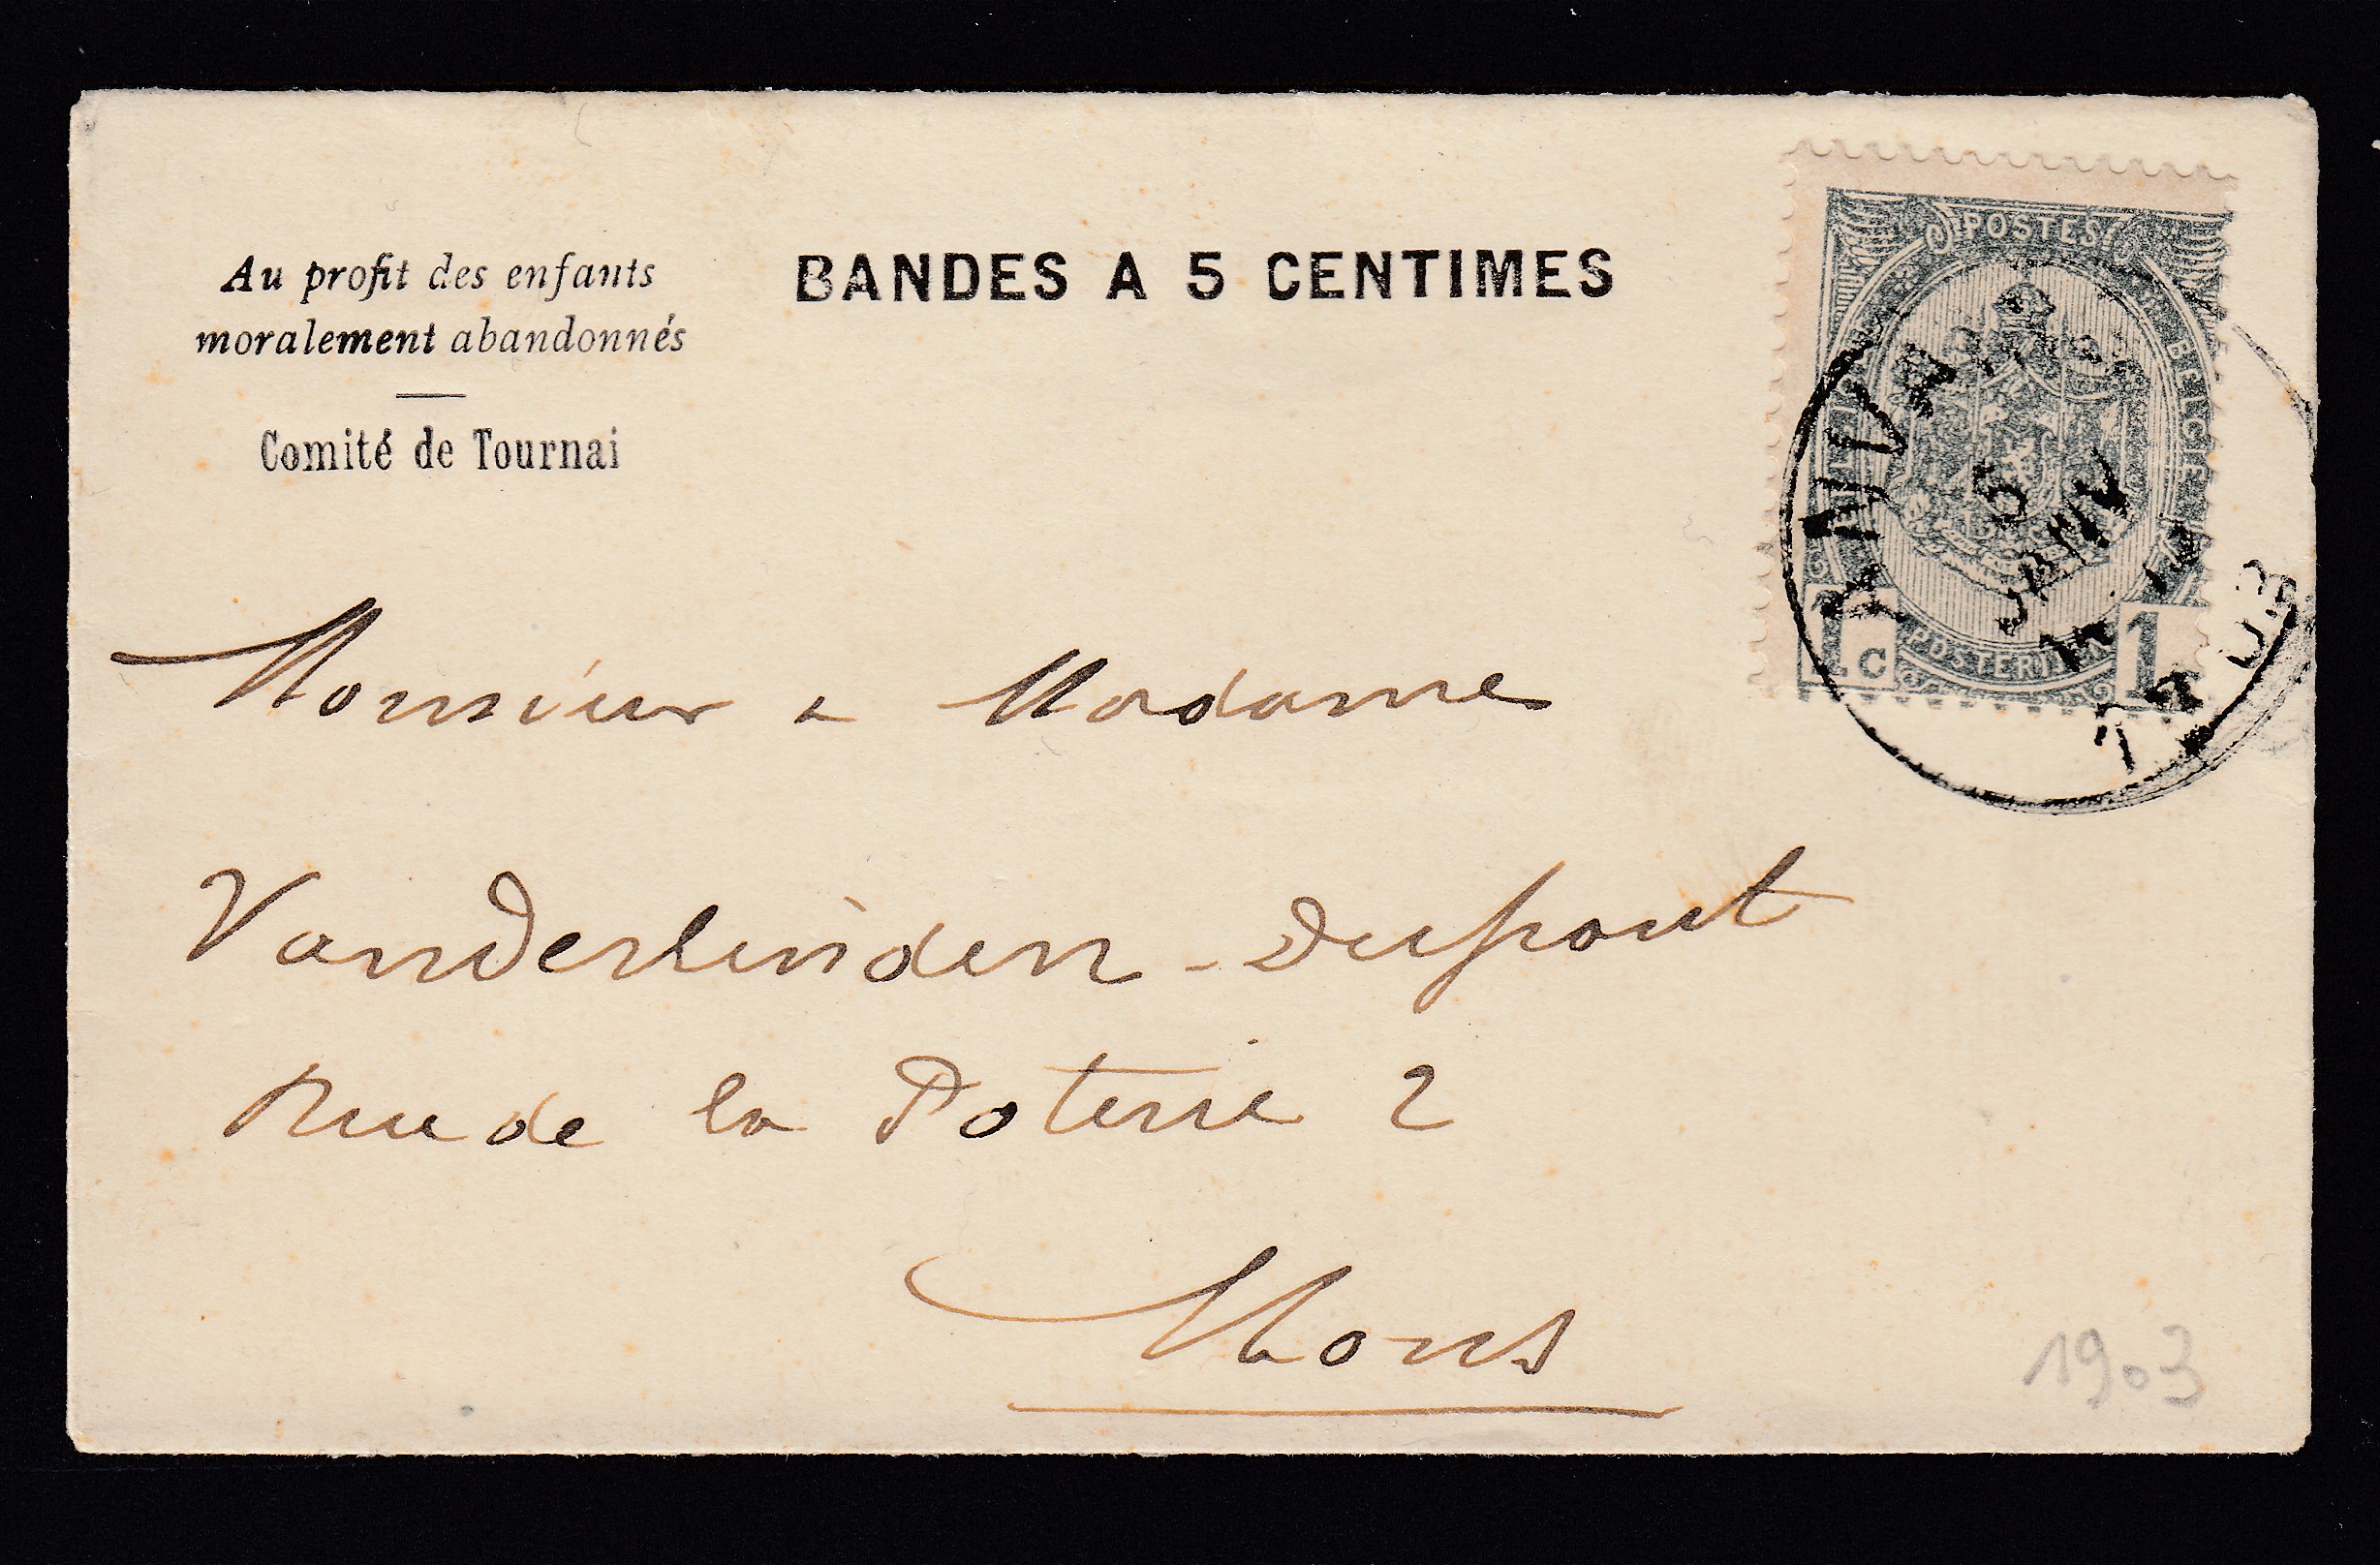 Au profit des enfants
moralement abandonnés
Comité de Tournai
BANDES A 5 CENTIMES
POSTES
BELGIE
POSTERIJEN
1c
1
5
JANV
Monsieur & Madame
Vanderlinden-Dupont
Rue de la Poterie 2
Mons
1903